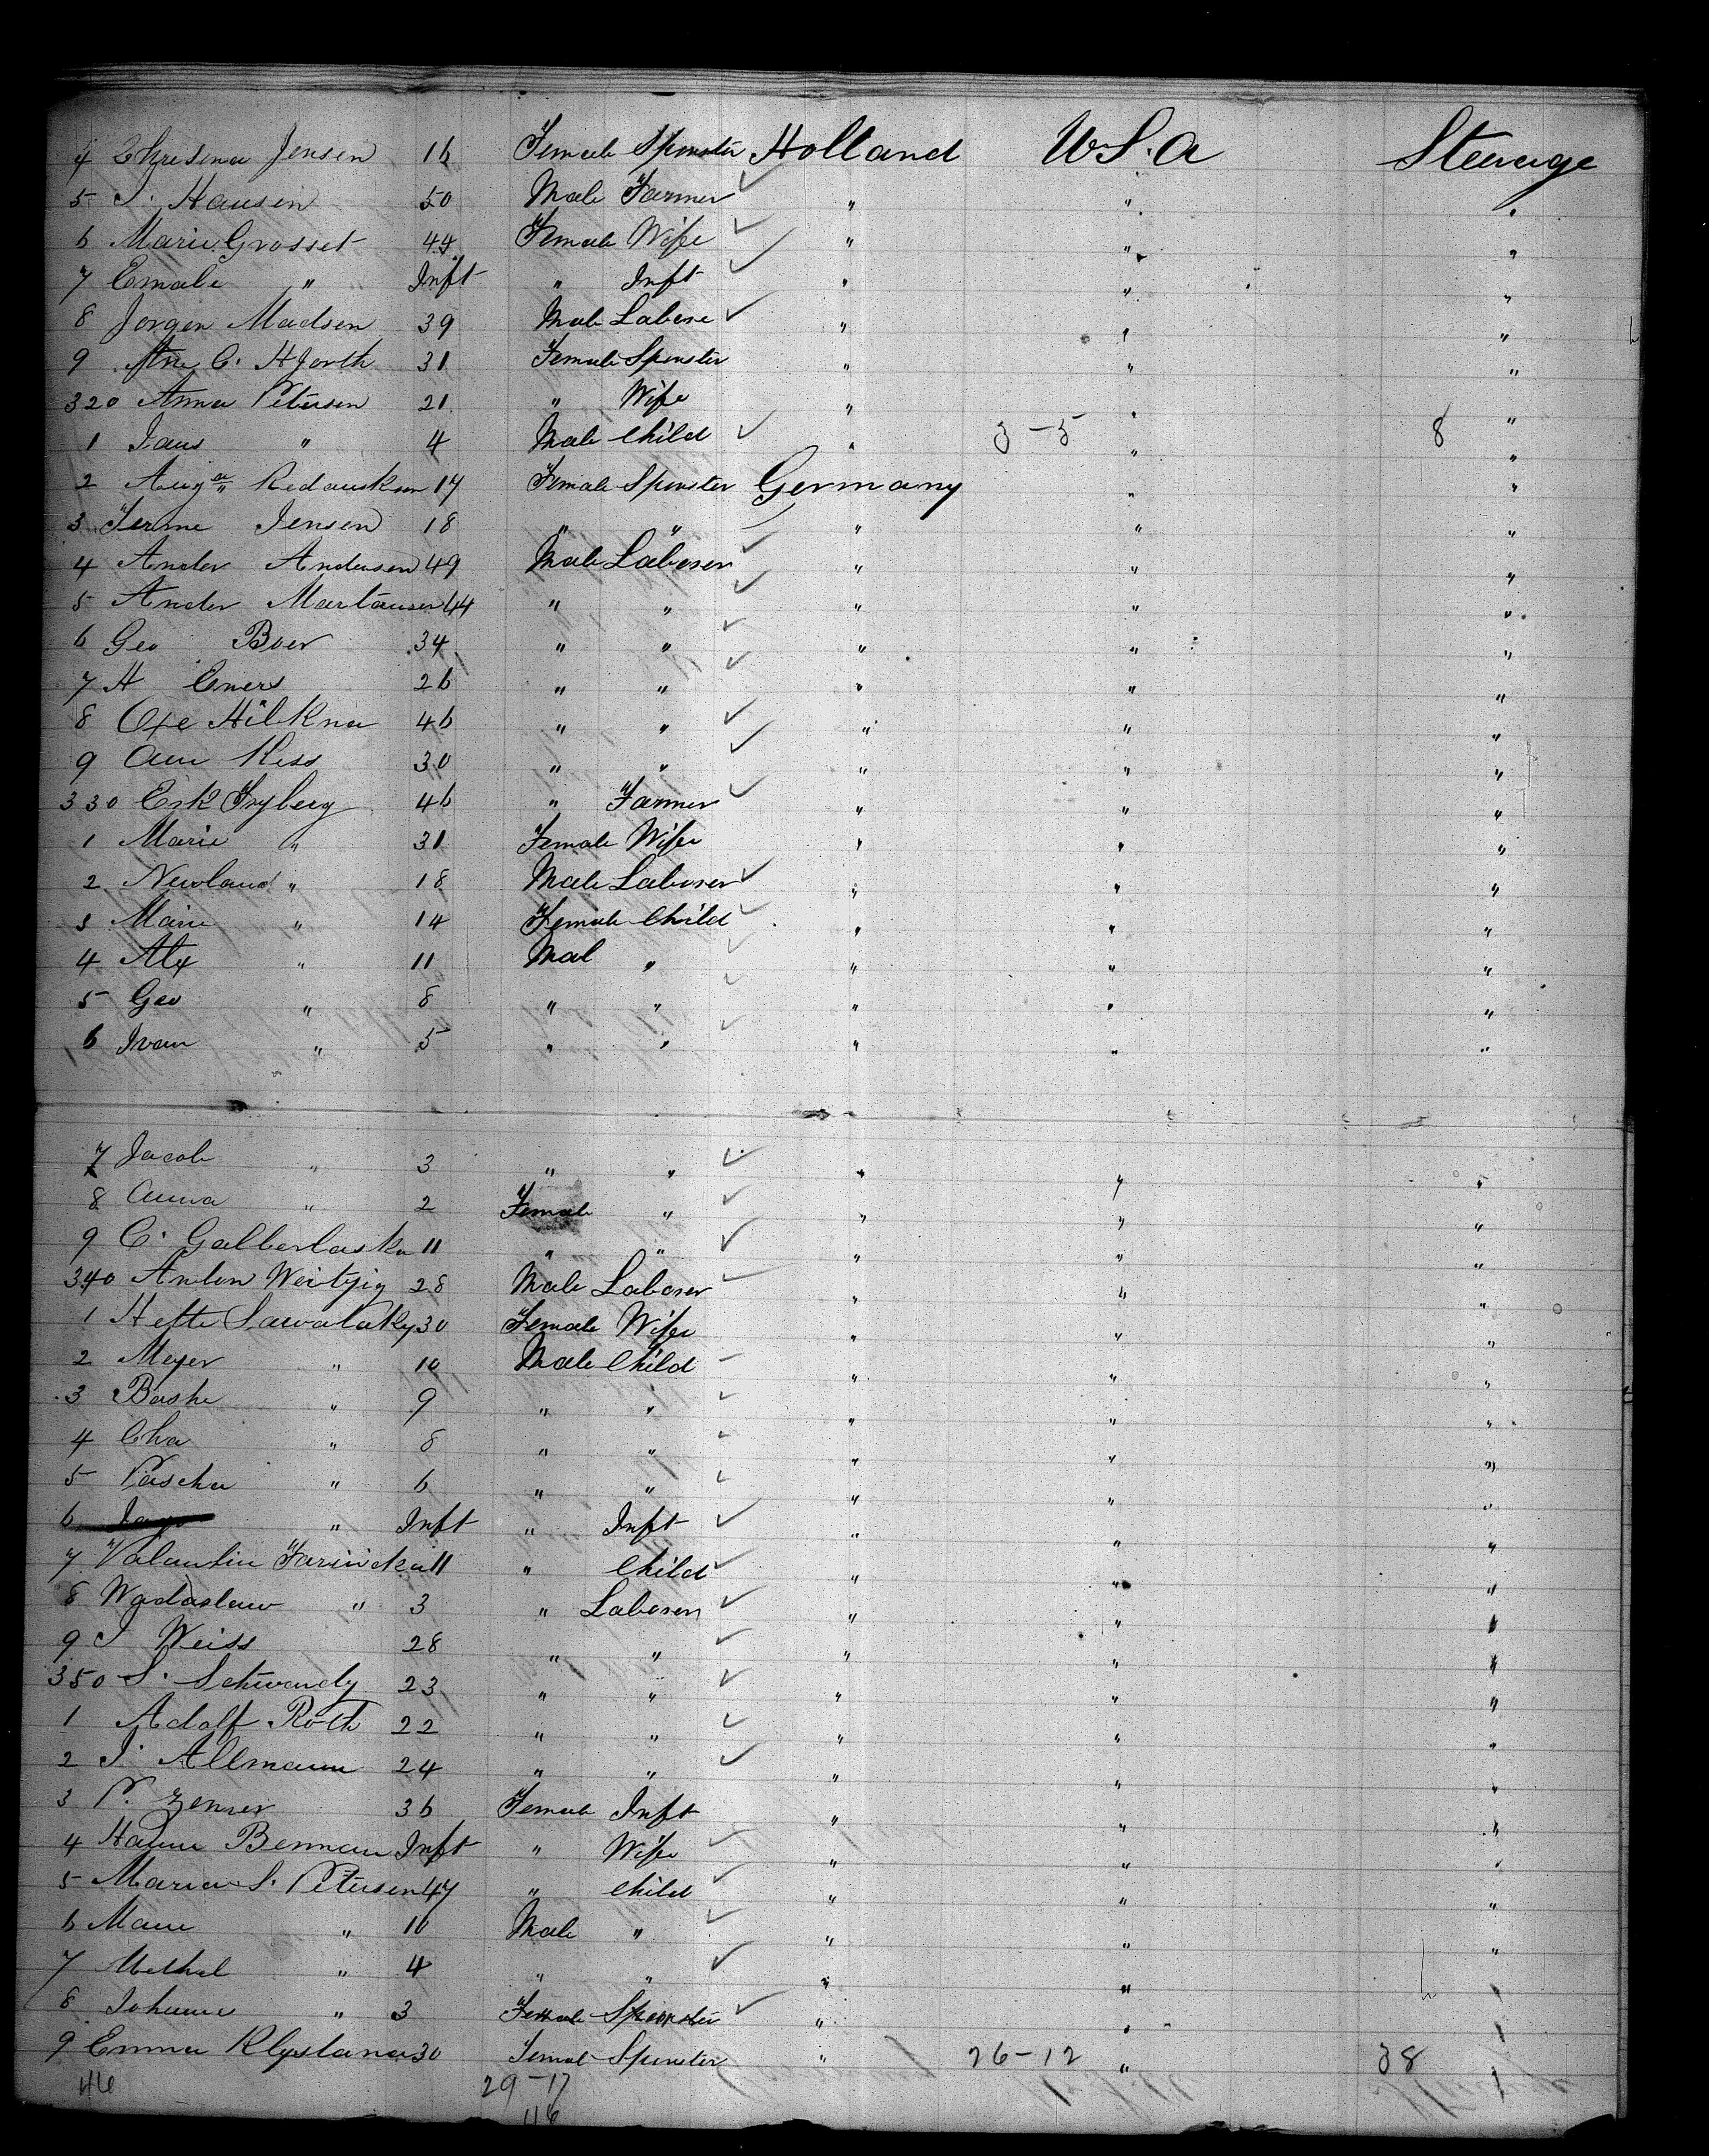 4 Chresena Jensen 16 Female Spinster Holland U.S.A Steerage
5 J. Hansen 50 Male Farmer " " "
6 Marie Grosset 44 Female Wife " " "
7 Emale " Inft " Inft " " "
8 Jorgen Madsen 39 Male Labore " " "
9 Ane C. Hjorth 31 Female Spinster " " "
320 Anna Petersen 21 " Wife " " "
1 Jans " 4 Male Child " 3-5 " 8 "
2 Aug Redauskam 17 Female Spinster Germany " "
3 Jensen 18 " " " " "
4 Ander Andersen 49 Male Laborer " " "
5 Ander Martausen 44 " " " " "
6 Geo Boer 34 " " " " "
7 H Emers 26 " " " " "
8 46 " " " " "
9 30 " " " " "
330 Erik Fryberg 46 " Farmer " " "
1 Marie " 31 Female Wife " " "
2 Newland " 18 Male Laborer " " "
3 Marie " 14 Female Child " " "
4 Alex " 11 Mal " " " "
5 Geo " 8 " " " " "
6 Ivan " 5 " " " " "
7 Jacob " 3 " " " " "
8 Anna " 2 Female " " " "
9 C. Galberlaska 11 " " " " "
340 Anton 28 Male Laborer " " "
1 Hette Sawalaky 30 Female Wife " " "
2 Meyer " 10 Male Child " " "
3 Bashe " 9 " " " " "
4 Cha " 8 " " " " "
5 Pascha " 6 " " " " "
6 " Inft " Inft " " "
7 Valentin 11 " Child " " "
8 Wadaslaw " 3 " Laborer " " "
9 J Weiss 28 " " " " "
350 S. Schwandy 23 " " " " "
1 Adolf Roth 22 " " " " "
2 J. Allmann 24 " " " " "
3 P. Zenner 36 Female Inft " " "
4 Hanne Benman Inft " Wife " " "
5 Maria S. Petersen 47 " Child " " "
6 " 10 Male " " " "
7 Methel " 4 " " " " "
8 Johanne " 3 Female Spinster " " "
9 Emma Klystana 30 Female Spinster " 26-12 " 38
46 29-17
46